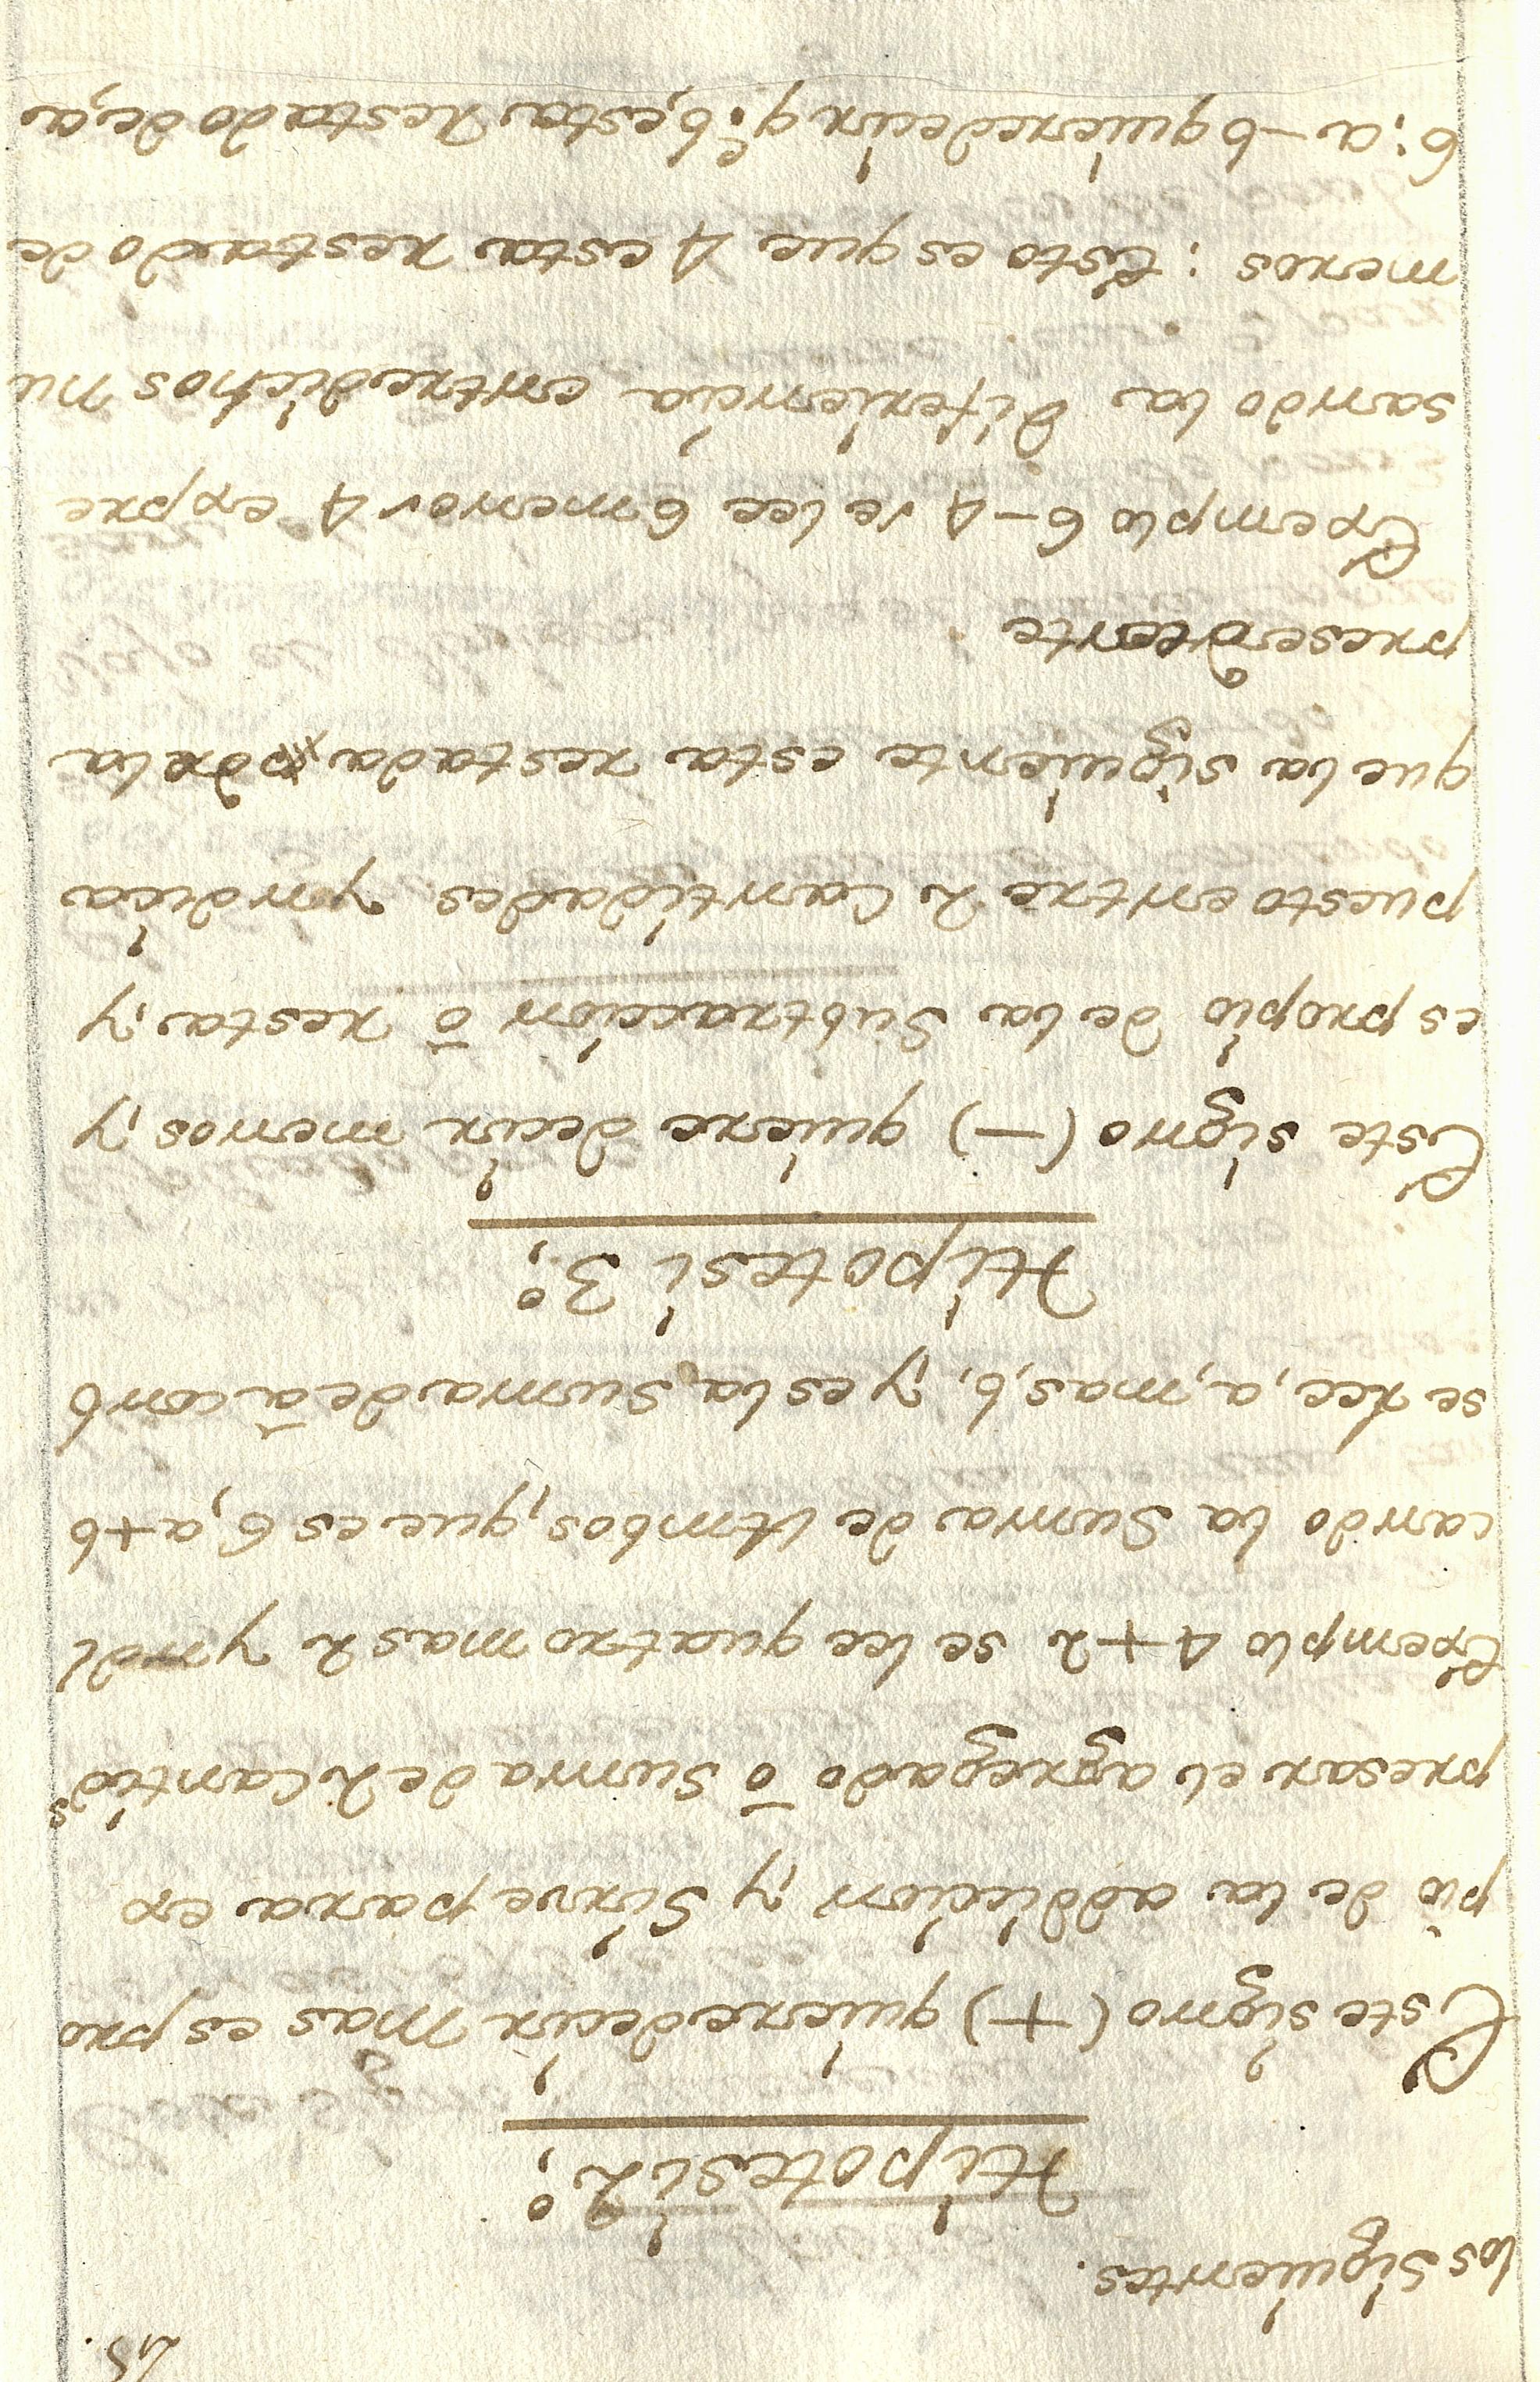 los siguientes.
Hipotesi 2º;
Este signo (+) quiere decir mas es pro
pio de la addicion y sirve para ex
presar el agregado ō suma de 2 Cantidˢ
Exemplo 4+2 se lee quatro mas 2 yndi
cando la Suma de Ambos, que es 6, a+b
se lee, a, mas, b, y es la, Suma de ā con b
Hipotesi 3º;
Este signo (−) quiere decir menos, y
es propio de la Subtraccion ō resta, y
puesto entre 2 Cantidades yndica
que la siguiente esta restada por la
presedente
Exemplo 6−4 se lee 6 menos 4 expre
sando la diferiencia entre dichos nu
meros: Esto es que 4 esta restado de
6: a−b quiere decir q.e b, esta restado de, a